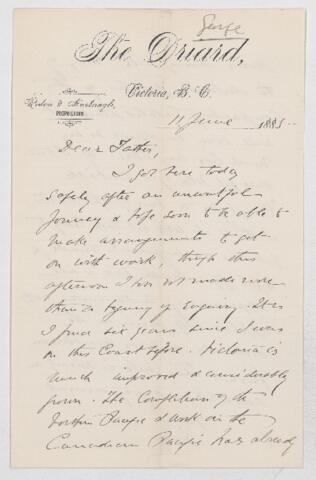 George
The Driard,
Victoria, B. C.
Redon & Hartnagle,
PROPRIETORS
11 June 1885
Dear Father,
I got here today
safely after an uneventful
journey & hope soon to be able to
make arrangements to get
on with work, though this
afternoon I have not made more
than a beginning of enquiry. It is
just six years since I was
on this Coast before. Victoria is
much improved & considerably
grown. The Completion of the
Northern Pacific & work on the
Canadian Pacific has already